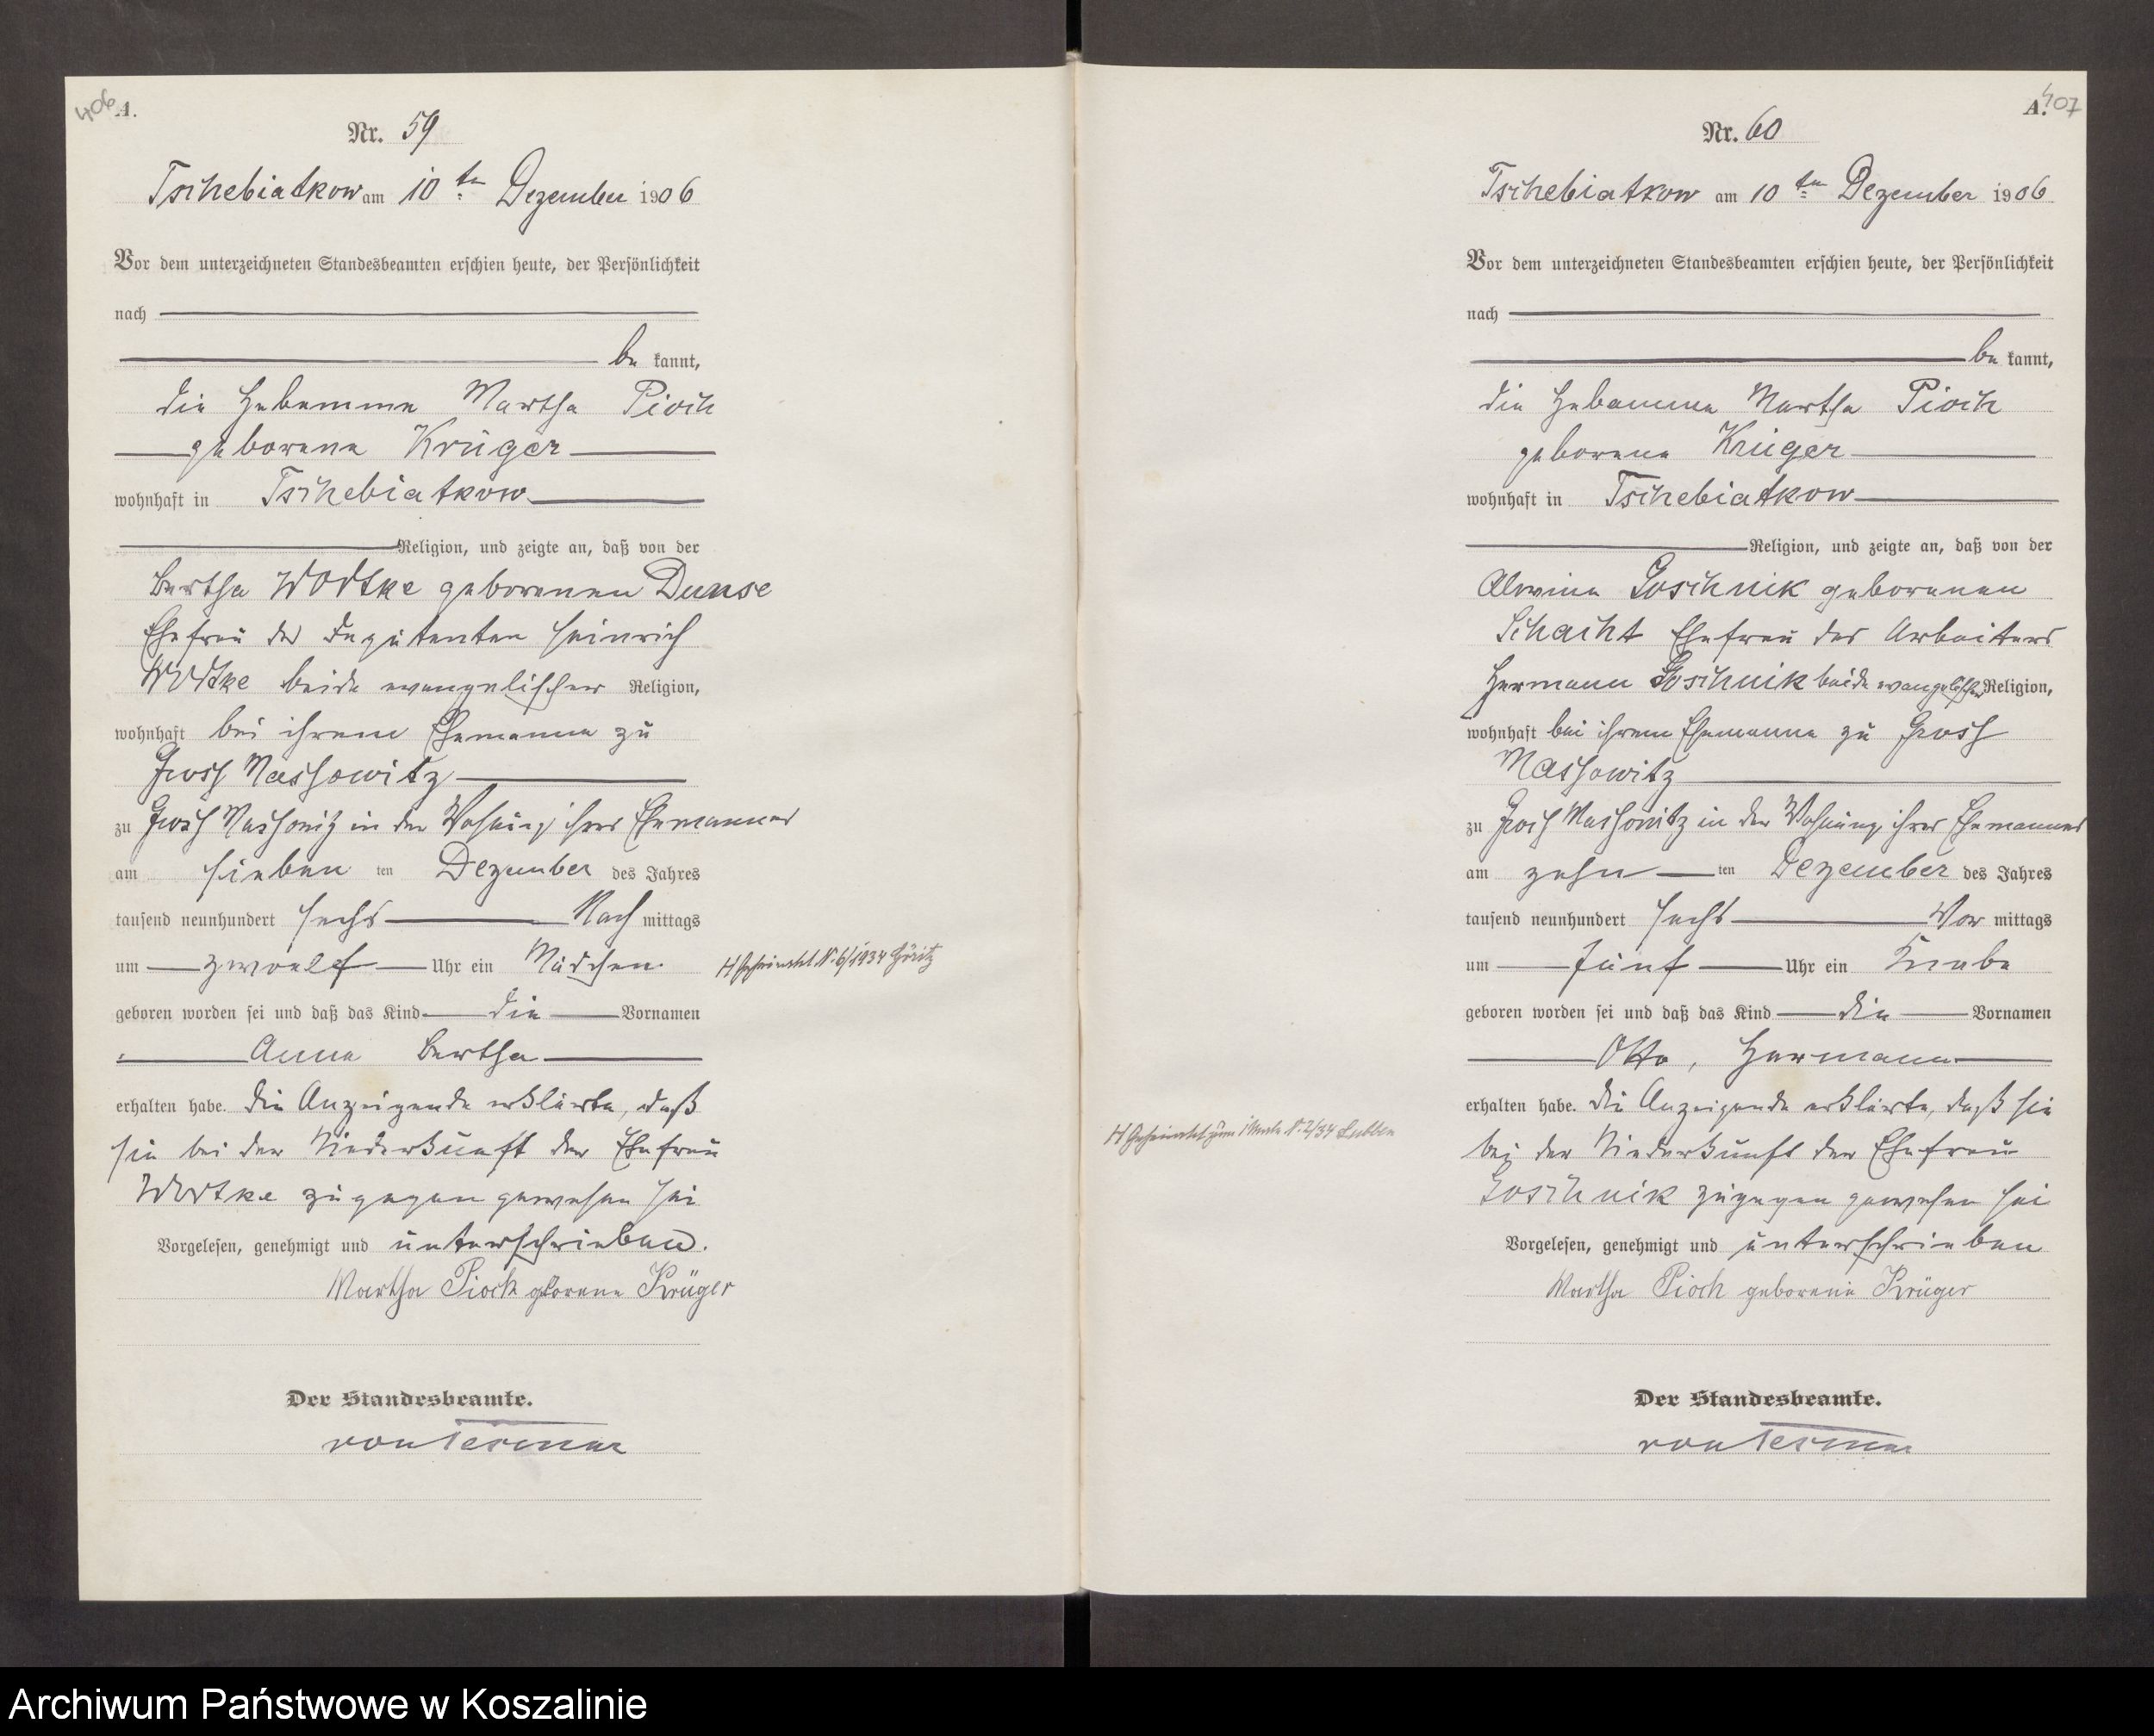 406
A.
Nr. 59
Tschebiatkow am 10ten Dezember 1906
Vor dem unterzeichneten Standesbeamten erschien heute, der Persönlichkeit
nach
be kannt,
die Hebamme Martha Pioch
geborene Krüger
wohnhaft in Tschebiatkow
Religion, und zeigte an, daß von der
Bertha Wodtke geborenen Dunse
Ehefrau des Deputanten Heinrich
Wodtke beide evangelischer Religion,
wohnhaft bei ihrem Ehemanne zu
Gross Massowitz
zu Gross Massowitz in der Wohnung ihres Ehemannes
am sieben ten Dezember des Jahres
tausend neunhundert sechs Nach mittags
um zwoelf Uhr ein Mädchen
H Geheiratet N. 6/1934
geboren worden sei und daß das Kind die Vornamen
Anna Bertha
erhalten habe. Die Anzeigende erklärte, daß
sie bei der Niederkunft der Ehefrau
Wodtke zugegen gewesen sei
Vorgelesen, genehmigt und unterschrieben.
Martha Pioch geborene Krüger
Der Standesbeamte.
407
A.
Nr. 60
Tschebiatkow am 10ten Dezember 1906
Vor dem unterzeichneten Standesbeamten erschien heute, der Persönlichkeit
nach
be kannt,
die Hebamme Martha Pioch
geborene Krüger
wohnhaft in Tschebiatkow
Religion, und zeigte an, daß von der
Alwine Goschnik geborenen
Schacht Ehefrau des Arbeiters
Hermann Goschnik beide evangelischer Religion,
wohnhaft bei ihrem Ehemanne zu Gross
Massowitz
zu Gross Massowitz in der Wohnung ihres Ehemannes
am zehn ten Dezember des Jahres
tausend neunhundert sechs Vor mittags
um fünf Uhr ein Knabe
geboren worden sei und daß das Kind die Vornamen
Otto, Hermann
erhalten habe. Die Anzeigende erklärte, daß sie
H Geheiratet zum N. 2/34 Lubben
bei der Niederkunft der Ehefrau
Goschnik zugegen gewesen sei
Vorgelesen, genehmigt und unterschrieben
Martha Pioch geborene Krüger
Der Standesbeamte.
Archiwum Państwowe w Koszalinie